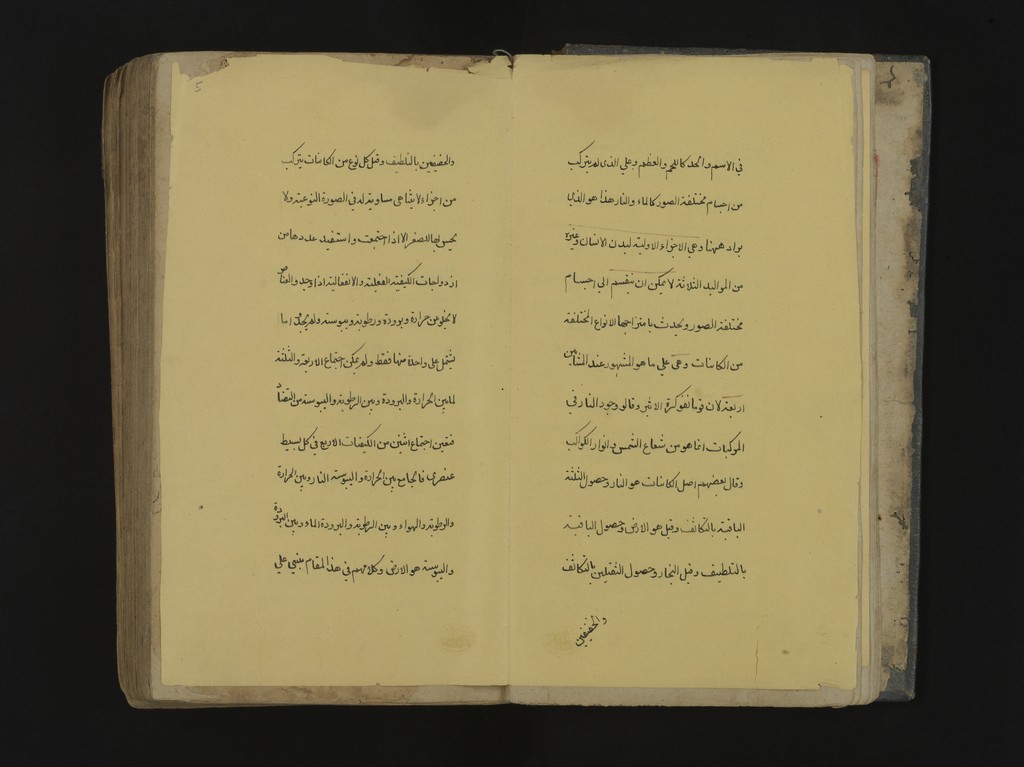 في الاسم والحد كاللحم والعظم وعلي الذى لم يتركب
من اجسام مختلفة الصور كالماء والنار هذا هو الذي
يراد ههنا وهي الاجزاء الاولية لبدن الانسان وغيره
من المواليد الثلاثة لا يمكن ان ينقسم الي اجسام
مختلفة الصور ويحدث بامتزاجها الانواع المختلفة
من الكائنات وهي علي ما هو المشهور عند المشائين
اربعة لان قوما نفوا كرة الاثير وقالو وجود النار في
المركبات انما هو من شعاع الشمس وانوار الكواكب
وقال بعضهم اصل الكائنات هو النار وحصول الثلثة
الباقية بالتكاثف وقيل هو الارض وحصول الباقية
بالتلطيف وقيل البخار وحصول الثقيلين بالتكاثف
والخفيفين
5
والخفيفين بالتلطيف وقيل كل نوع من الكائنات يتركب
من اجزاء لا يتناهى مساوية له في الصورة النوعية ولا
يحس بها للصغر الا اذا اجتمعت واستفيد عددها من
ازدواجات الكيفية الفعلية والانفعالية اذا وجدوا العناصر
لا يخلو من حرارة وبرودة ورطوبة ويبوسة ولم يجدوا ما
يشتمل على واحدة منها فقط ولم يمكن اجتماع الاربعة والثلثة
لما بين الحرارة والبرودة وبين الرطوبة واليبوسة من التضاد
فتعين اجتماع اثنين من الكيفيات الاربع في كل بسيط
عنصرى فالجامع بين الحرارة واليبوسة النار وبين الحرارة
والرطوبة والهواء وبين الرطوبة والبرودة الماء وبين البرودة
واليبوسة هو الارض وكلامهم في هذا المقام مبني علي